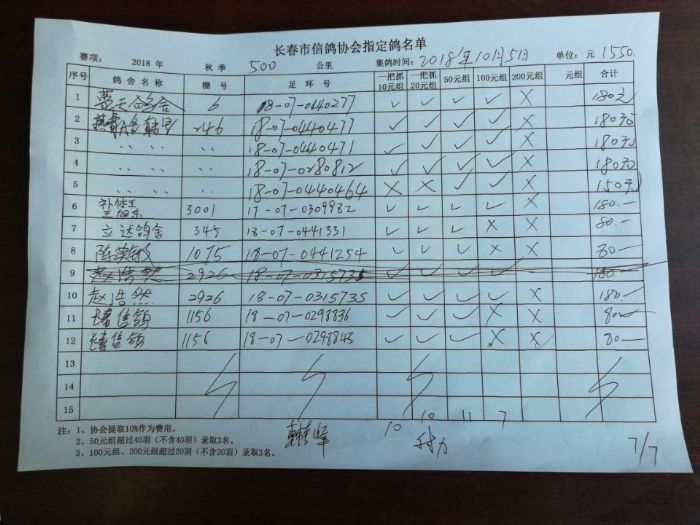 长春市信鸽协会指定鸽名单
赛项: 2018 年 秋季 500 公里 集鸽时间: 2018年10月5日 单位: 元 1550.
序号 鸽舍名称 棚号 足环号 一把抓10元组 一把抓20元组 50元组 100元组 200元组 元组 合计
1 6 18-07-0440277 ✓ ✓ ✓ ✓ X 180元
2 246 18-07-0440477 ✓ ✓ ✓ ✓ X 180元
3 〃 〃 〃 〃 18-07-0440471 ✓ ✓ ✓ ✓ X 180元
4 〃 〃 〃 〃 18-07-0280812 ✓ ✓ ✓ ✓ X 180元
5 〃 〃 〃 〃 18-07-0440464 X X ✓ ✓ X 150元
6 3001 17-07-0309982 ✓ ✓ ✓ ✓ X 180.—
7 立达鸽舍 345 18-07-0441331 ✓ ✓ ✓ X X 80.—
8 1075 18-07-0441254 ✓ ✓ ✓ X X 80—
9 赵浩然 2926 18-07-0315735 ✓ ✓ ✓ ✓ 180—
10 赵浩然 2926 18-07-0315735 ✓ ✓ ✓ ✓ X 180—
11 1156 18-07-0298836 ✓ ✓ ✓ X X 80—
12 1156 18-07-0298843 ✓ ✓ ✓ X X 80—
13
14
15
注: 1、协会提取10%作为费用。 10 10 11 7
2、50元组超过40羽(不含40羽)录取3名。
3、100元组、200元组超过20羽(不含20羽)录取3名。 7/7